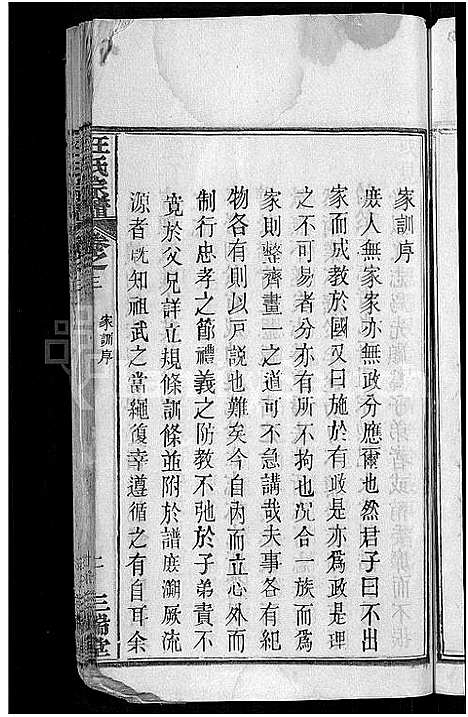 家訓序
庶人無家家亦無政分應爾也然君子曰不出
家而成教於國又曰施於有政是亦爲政是理
之不可易者分亦有所不拘也况合一族而爲
家則整齊畫一之道可不急講哉夫事各有紀
物各有則以戸説也難矣今自內而立心外而
制行忠孝之節禮義之防教不弛於子弟責不
寬於父兄詳立規條訓條並附於譜庶溯厥流
源者旣知祖武之當繩復幸遵循之有自耳余
汪氏宗譜
卷之三
家訓序
三瑞堂